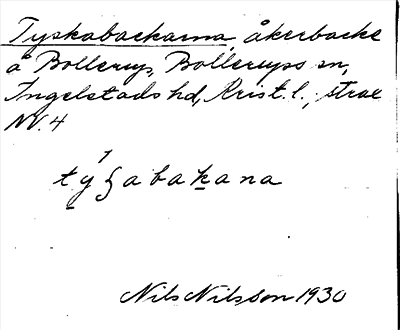 Tyskabackarna, åkerbacke
å Bollerup, Bollerups sn,
Ingelstads hd, Krist. l.; strax
NV. 4
Nils Nilsson 1930